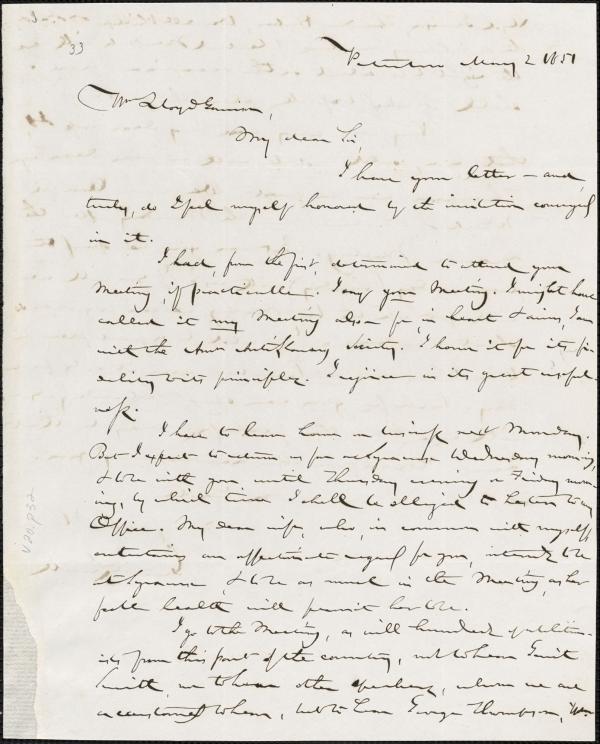 33
Peterboro May 2 1851
Wm Lloyd Garrison,
My dear Sir,
I have your letter — and,
truly, do I feel myself honored by the invitation conveyed
in it.
I had, from the first, determined to attend your
Meeting, if practicable. I say your Meeting. I might have
called it my Meeting also — for, in heart & aims, I am
with the Amn Anti Slavery Society. I honor it for its fi-
delity to its principles. I rejoice in its great useful-
ness.
I have to leave home on business next Monday.
But I expect to return as far as Syracuse Wednesday morning,
& to be with you until Thursday evening or Friday morn-
ing, by which time I shall be obliged to hasten to my
Office. My dear wife, who, in common with myself
entertains an affectionate regard for you, intends to be
at Syracuse, & to be as much in the Meeting, as her
feeble health will permit her to be.
I go to the Meeting, as will hundreds of abolition-
ists from this part of the country, not to hear Gerrit
Smith, nor to hear other speakers, whom we are
accustomed to hear, but to hear George Thompson, Wm
V20, p32